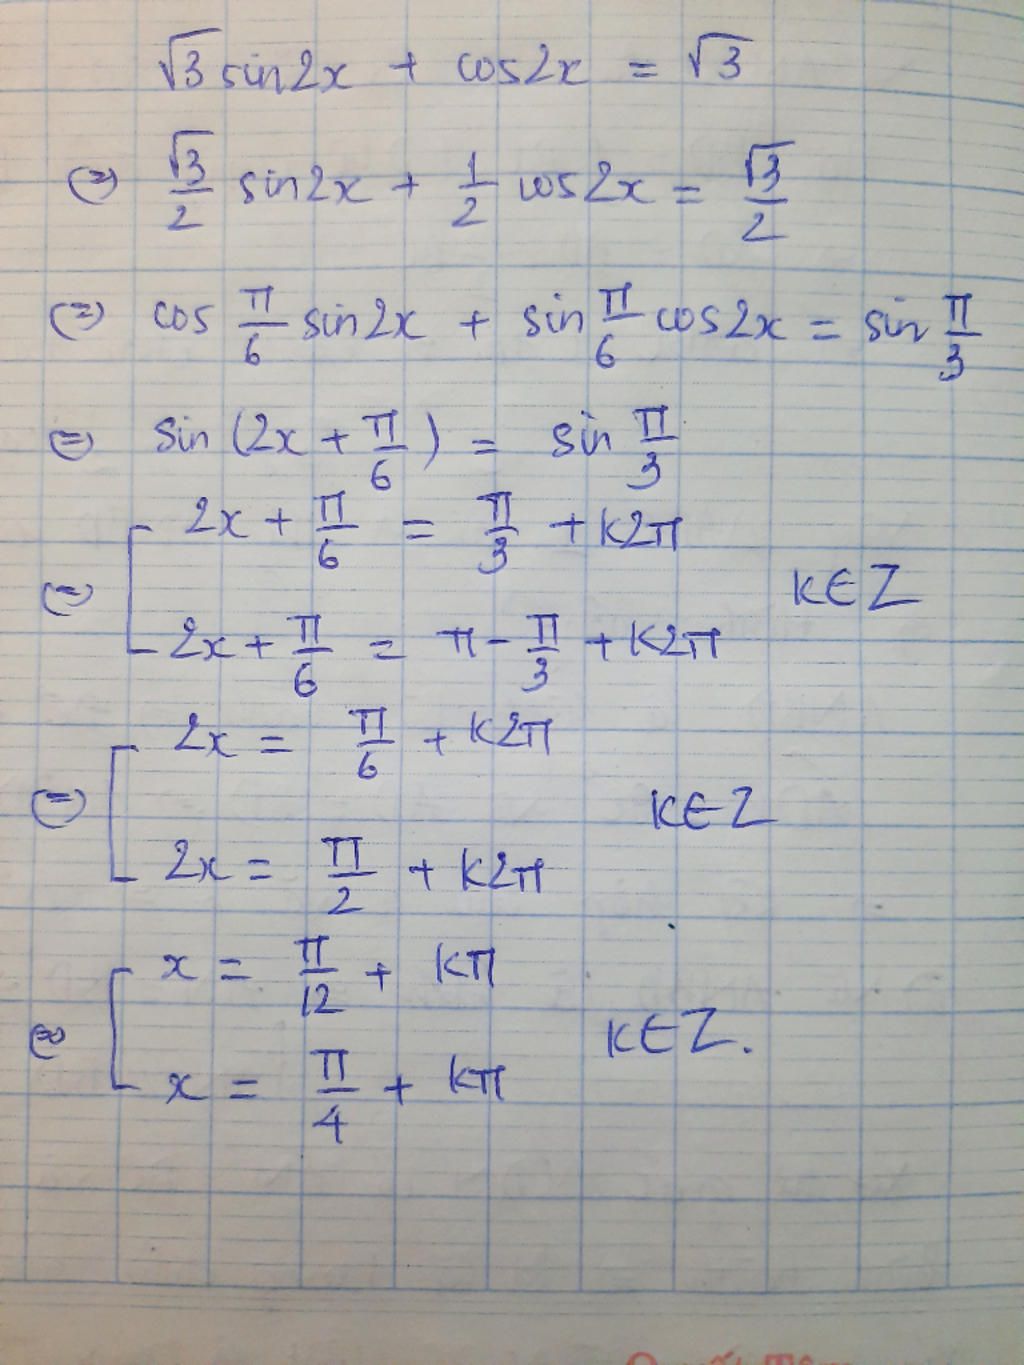 √3 sin2x + cos2x = √3
⇔ √3/2 sin2x + 1/2 cos2x = √3/2
⇔ cos π/6 sin2x + sin π/6 cos2x = sin π/3
⇔ sin (2x + π/6) = sin π/3
⇔ [ 2x + π/6 = π/3 + K2π
2x + π/6 = π - π/3 + K2π
K∈Z
⇔ [ 2x = π/6 + K2π
2x = π/2 + K2π
K∈Z
⇔ [ x = π/12 + Kπ
x = π/4 + Kπ
K∈Z.